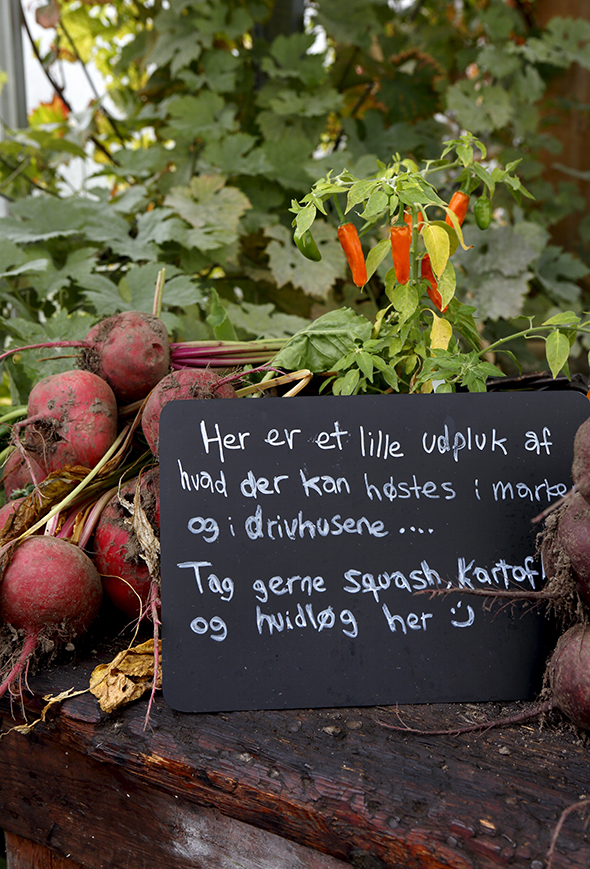 Her er et lille udpluk af
hvad der kan høstes i marke
og i drivhusene ....
Tag gerne squash, kartof
og hvidløg her :)